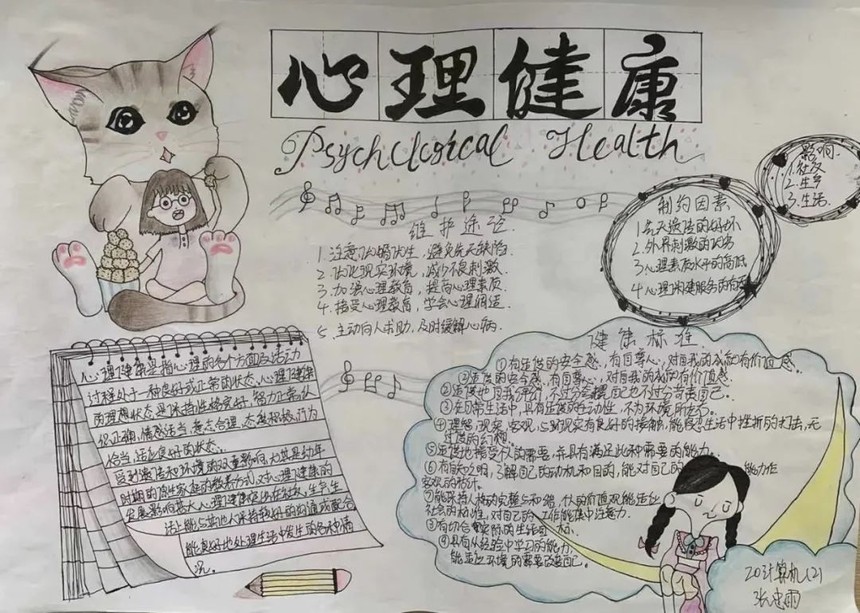 心理健康
Psychclogical Health
影响.
1.社交
2.生乡
3.生活.
制约因素
1.先天遗传的好坏
2.外界刺激的大劣
3.心理素质水平的高低
4.心理保健服务的有
维护途径
1.注意 优生.避免先天缺陷.
2.优化现实环境,减少不良刺激.
3.加强心理教育,提高心理素质.
4.接受心理教育,学会心理调适.
5.主动向人求助,及时缓解心病.
心理健康是指心理的各个方面及活动
过程处于一种良好或正常的状态.心理健康
的理想状态是保持性格完好.智力正常.认
识正确.情感适当.意志合理.态度积极.行为
恰当.适应良好的状态.
受到遗传和环境的双重影响,尤其是幼年
时期的原生家庭的教养方式,对心理健康的
发展影响甚大.心理健康突出在社交.生产.生
活上能与其他人保持较好的沟通或配合
能良好地处理生活中发生的各种情
况.
健康标准.
①有适度的安全感.有自尊心,对自我的成就有价值感.
②适度的安全感,有自尊心,对自我的成就有价值感.
②适度地自我评价,不过分 自己也不过分苛责自己.
③在日常生活中,具有适度的主动性,不为环境所左右.
④理智,现实,客观,与现实有良好的接触,能 生活中挫折的打击,无
过度的幻想.
⑤适度地接受个人的需要,并具有满足此种需要的能力.
⑥有自知之明,了解自己的动机和目的,能对自己的 能力作
客观的估计.
⑦能保持人格的完整与和谐.个人的价值观能适应
社会的标准,对自己的工作能集中注意力.
⑧有切合实际的生活目标.
⑨具有从经验中学习的能力.
能适应环境的需要改变自己.
20计算机(2)
张忠雨